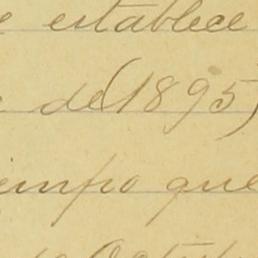 e establece
de (1895)
iempo que